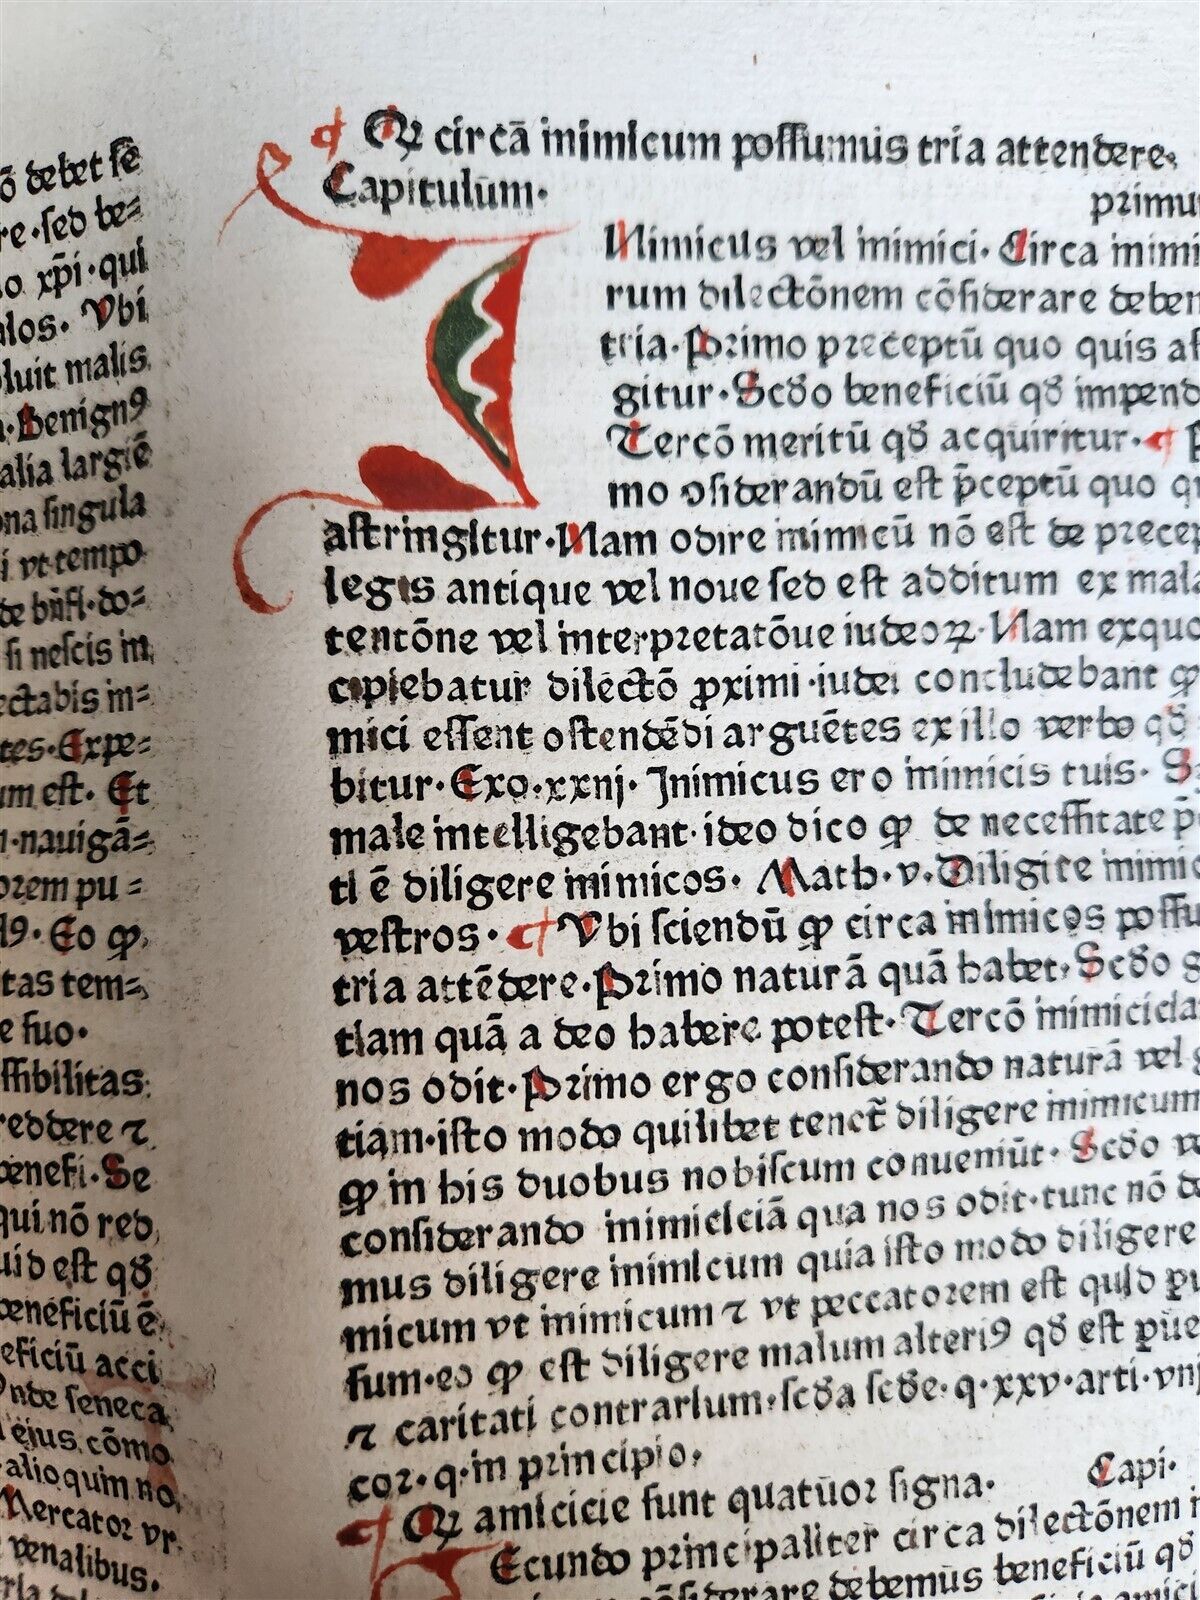 ō debet sē
re·sed be=
o xp̄i·qui
alos· Vbi
luit malis
Benignꝰ
alia largiē
ona singula
vt tempo
de bn̄fi·do=
si nescis in
ectabis in=
tes·Expe=
um est· Et
nauigā=
orem pu=
Eo ꝙ
tas tem=
e suo·
ssibilitas
reddere ⁊
benefi·Se
qui nō red
uid est qđ
beneficiū ē
eficiū acci
Onde seneca
eius cōmo
alioquin no
Mercator vr
venalibus·
¶ Qꝛ circā inimicum possumus tria attendere·
Capitulūm·
primu
INimicus vel inimici·Circa inimi
rum dilectōnem cōsiderare deben
tria·Primo preceptū quo quis as
gitur·Scđo beneficiū qđ impend
Tercō meritū qđ acquiritur·¶ P
mo ꝯsiderandū est p̄ceptū quo qu
astringitur·Nam odire inimicū nō est de precep
legis antique vel noue sed est additum ex mala
tentōne vel interpretatōue iudeoꝝ·Nam exquo
cipiebatur dilectō ꝓximi·iudei concludebant ꝙ
mici essent ostendēdi arguētes ex illo verbo qđ
bitur·Exo·xxnj·Jnimicus ero inimicis tuis· S
male intelligebant·ideo dico ꝙ de necessitate p̄
ti ē diligere inimicos· Math·v·Diligite inimic
vestros·¶ Vbi sciendū ꝙ circa inimicos possu
tria attēdere·Primo naturā quā habet·Scđo g
tiam quā a deo habere potest·Tercō inimicicia
nos odit·Primo ergo considerando naturā vel g
tiam·isto modo quilibet tenct̄ diligere inimicum
ꝙ in his duobus nobiscum conueniūt·Scđo ve
considerando inimicíciā qua nos odit·tunc nō de
mus diligere inimicum quia isto modo diligere
micum vt inimicum ⁊ vt peccatorem est quid ꝑu
sum·eo ꝙ est diligere malum alteriꝰ qđ est ꝑue
⁊ caritati contrarium·scđa scđe·q·xxv·arti·vnj
cor·q·in principio·
¶ Qꝛ amicicie sunt quatuor signa· Capi·
Ecundo principaliter circa dilectōnem i
cōsiderare debemus beneficiū qđ